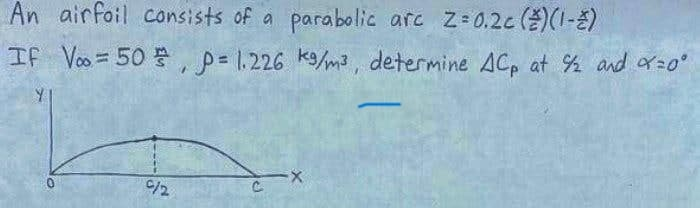 An airfoil consists of a parabolic arc Z=0.2c (x/c)(1-x/c)
If V∞ = 50 m/s , ρ= 1.226 kg/m³, determine ΔCp at c/2 and α=0°
Y
0
c/2
c
X